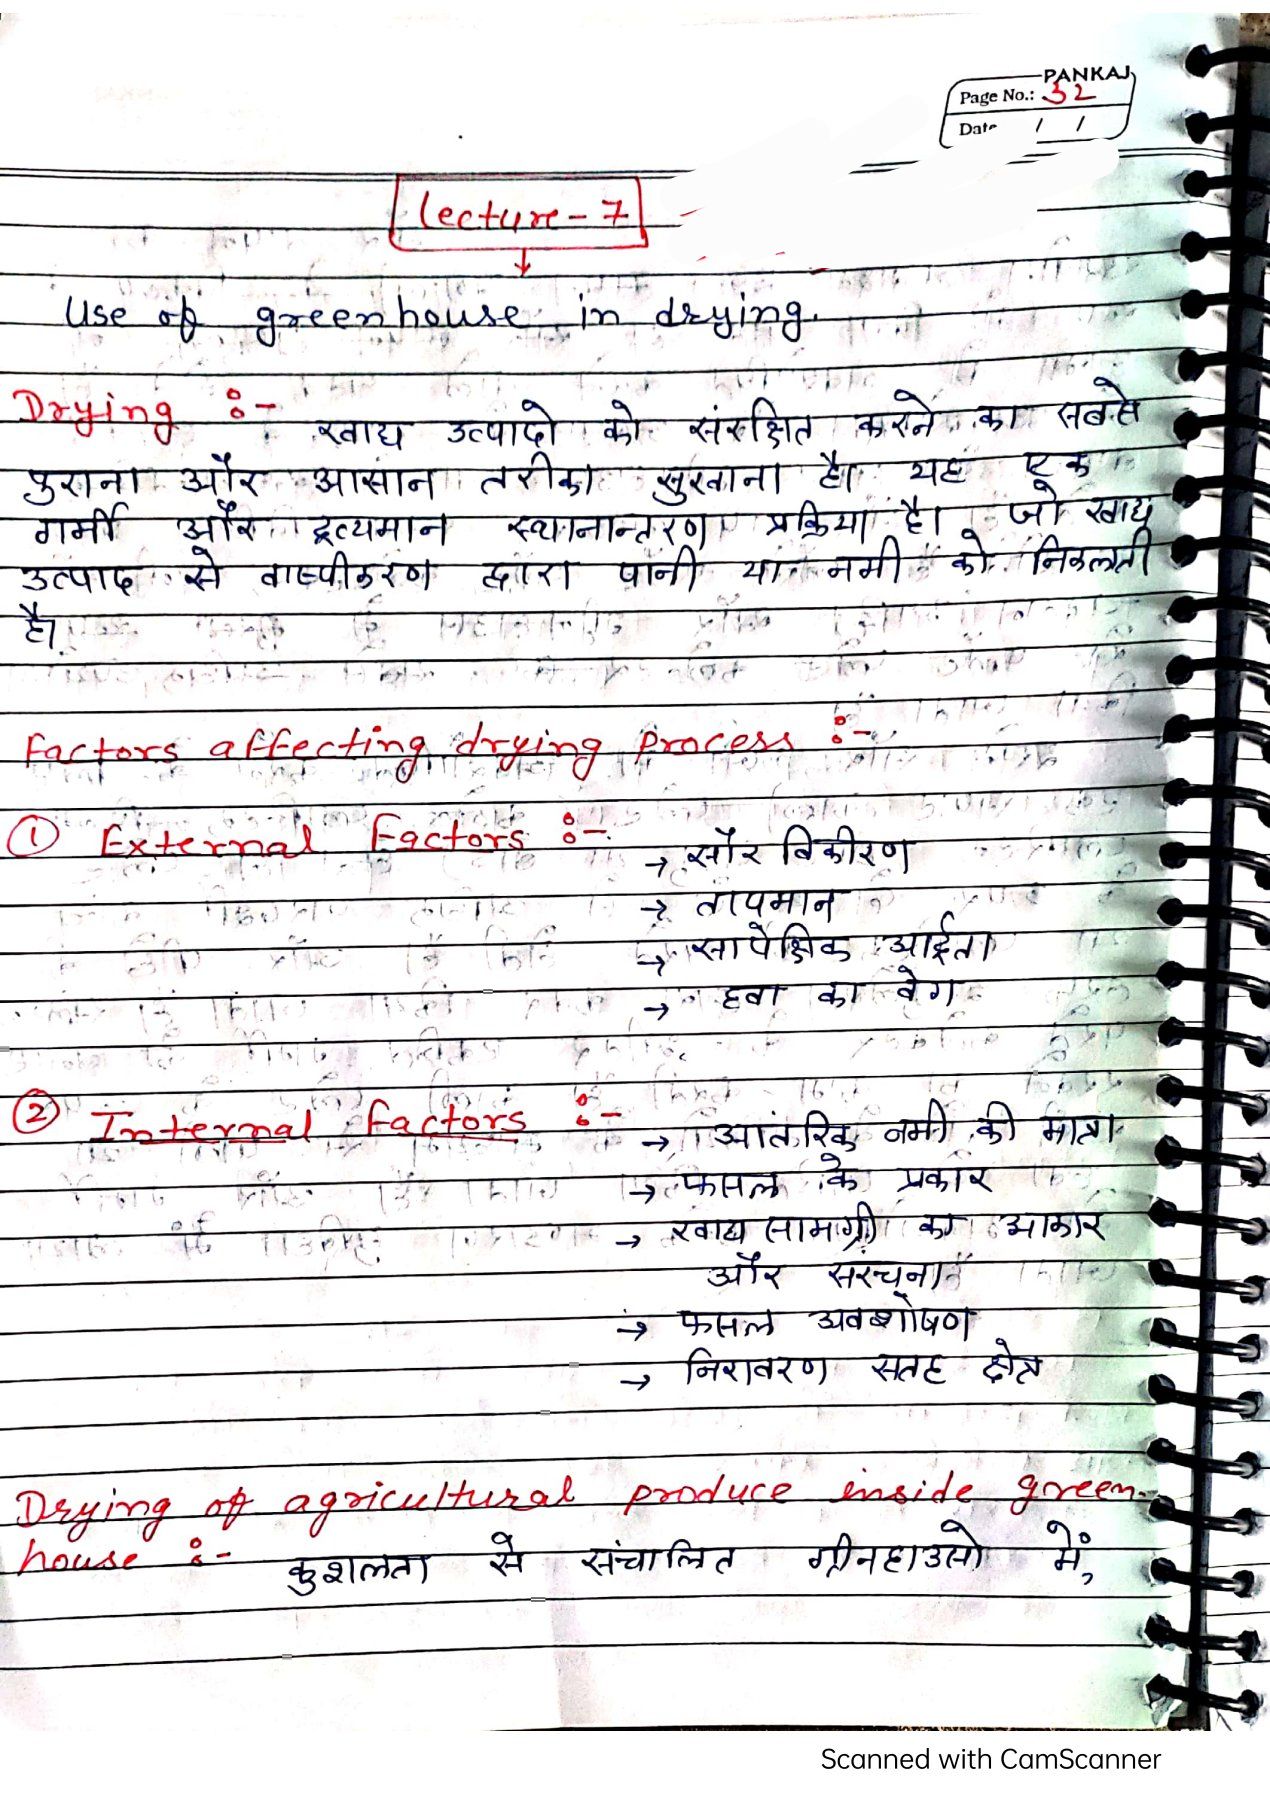 PANKAJ
Page No.: 32
Date / /
Lecture - 7
Use of greenhouse in drying.
Drying :- खाद्य उत्पादो को संरक्षित करने का सबसे
पुराना और आसान तरीका सुखाना है। यह एक
गर्मी और द्रव्यमान स्थानान्तरण प्रक्रिया है। जो खाद्य
उत्पाद से वाष्पीकरण द्वारा पानी या नमी को निकलती
है।
Factors affecting drying process :-
① External Factors :- → सौर विकीरण
→ तापमान
→ सापेक्षिक आर्द्रता
→ हवा का वेग
② Internal Factors :- → आंतरिक नमी की मात्रा
→ फसल के प्रकार
→ खाद्य सामग्री का आकार
और संरचना
→ फसल अवशोषण
→ निरावरण सतह क्षेत्र
Drying of agricultural produce inside green-
house :- कुशलता से संचालित ग्रीनहाउसो में,
Scanned with CamScanner